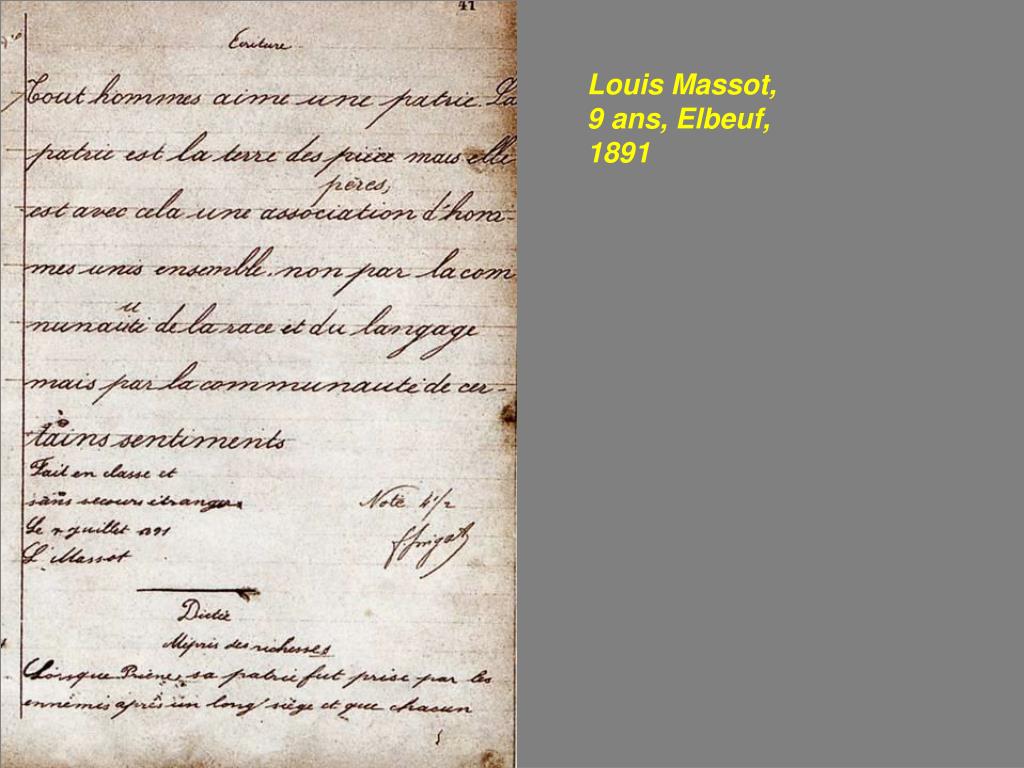 41
Ecriture
Tout hommes aime une patrie. La
patrie est la terre des pièce mais elle
pères,
est avec cela une association d'hom-
mes unis ensemble. non par la com
u
nunauité de la race et du langage
mais par la communauté de cer-
tains sentiments
Fait en classe et
sans secours étranger
Le 7 Juillet 1891
L Massot
Note 4 1/2
Dictée
Mépris des richesses
Lorsque Priène, sa patrie fut prise par les
ennemis après un long siège et que chacun
Louis Massot,
9 ans, Elbeuf,
1891